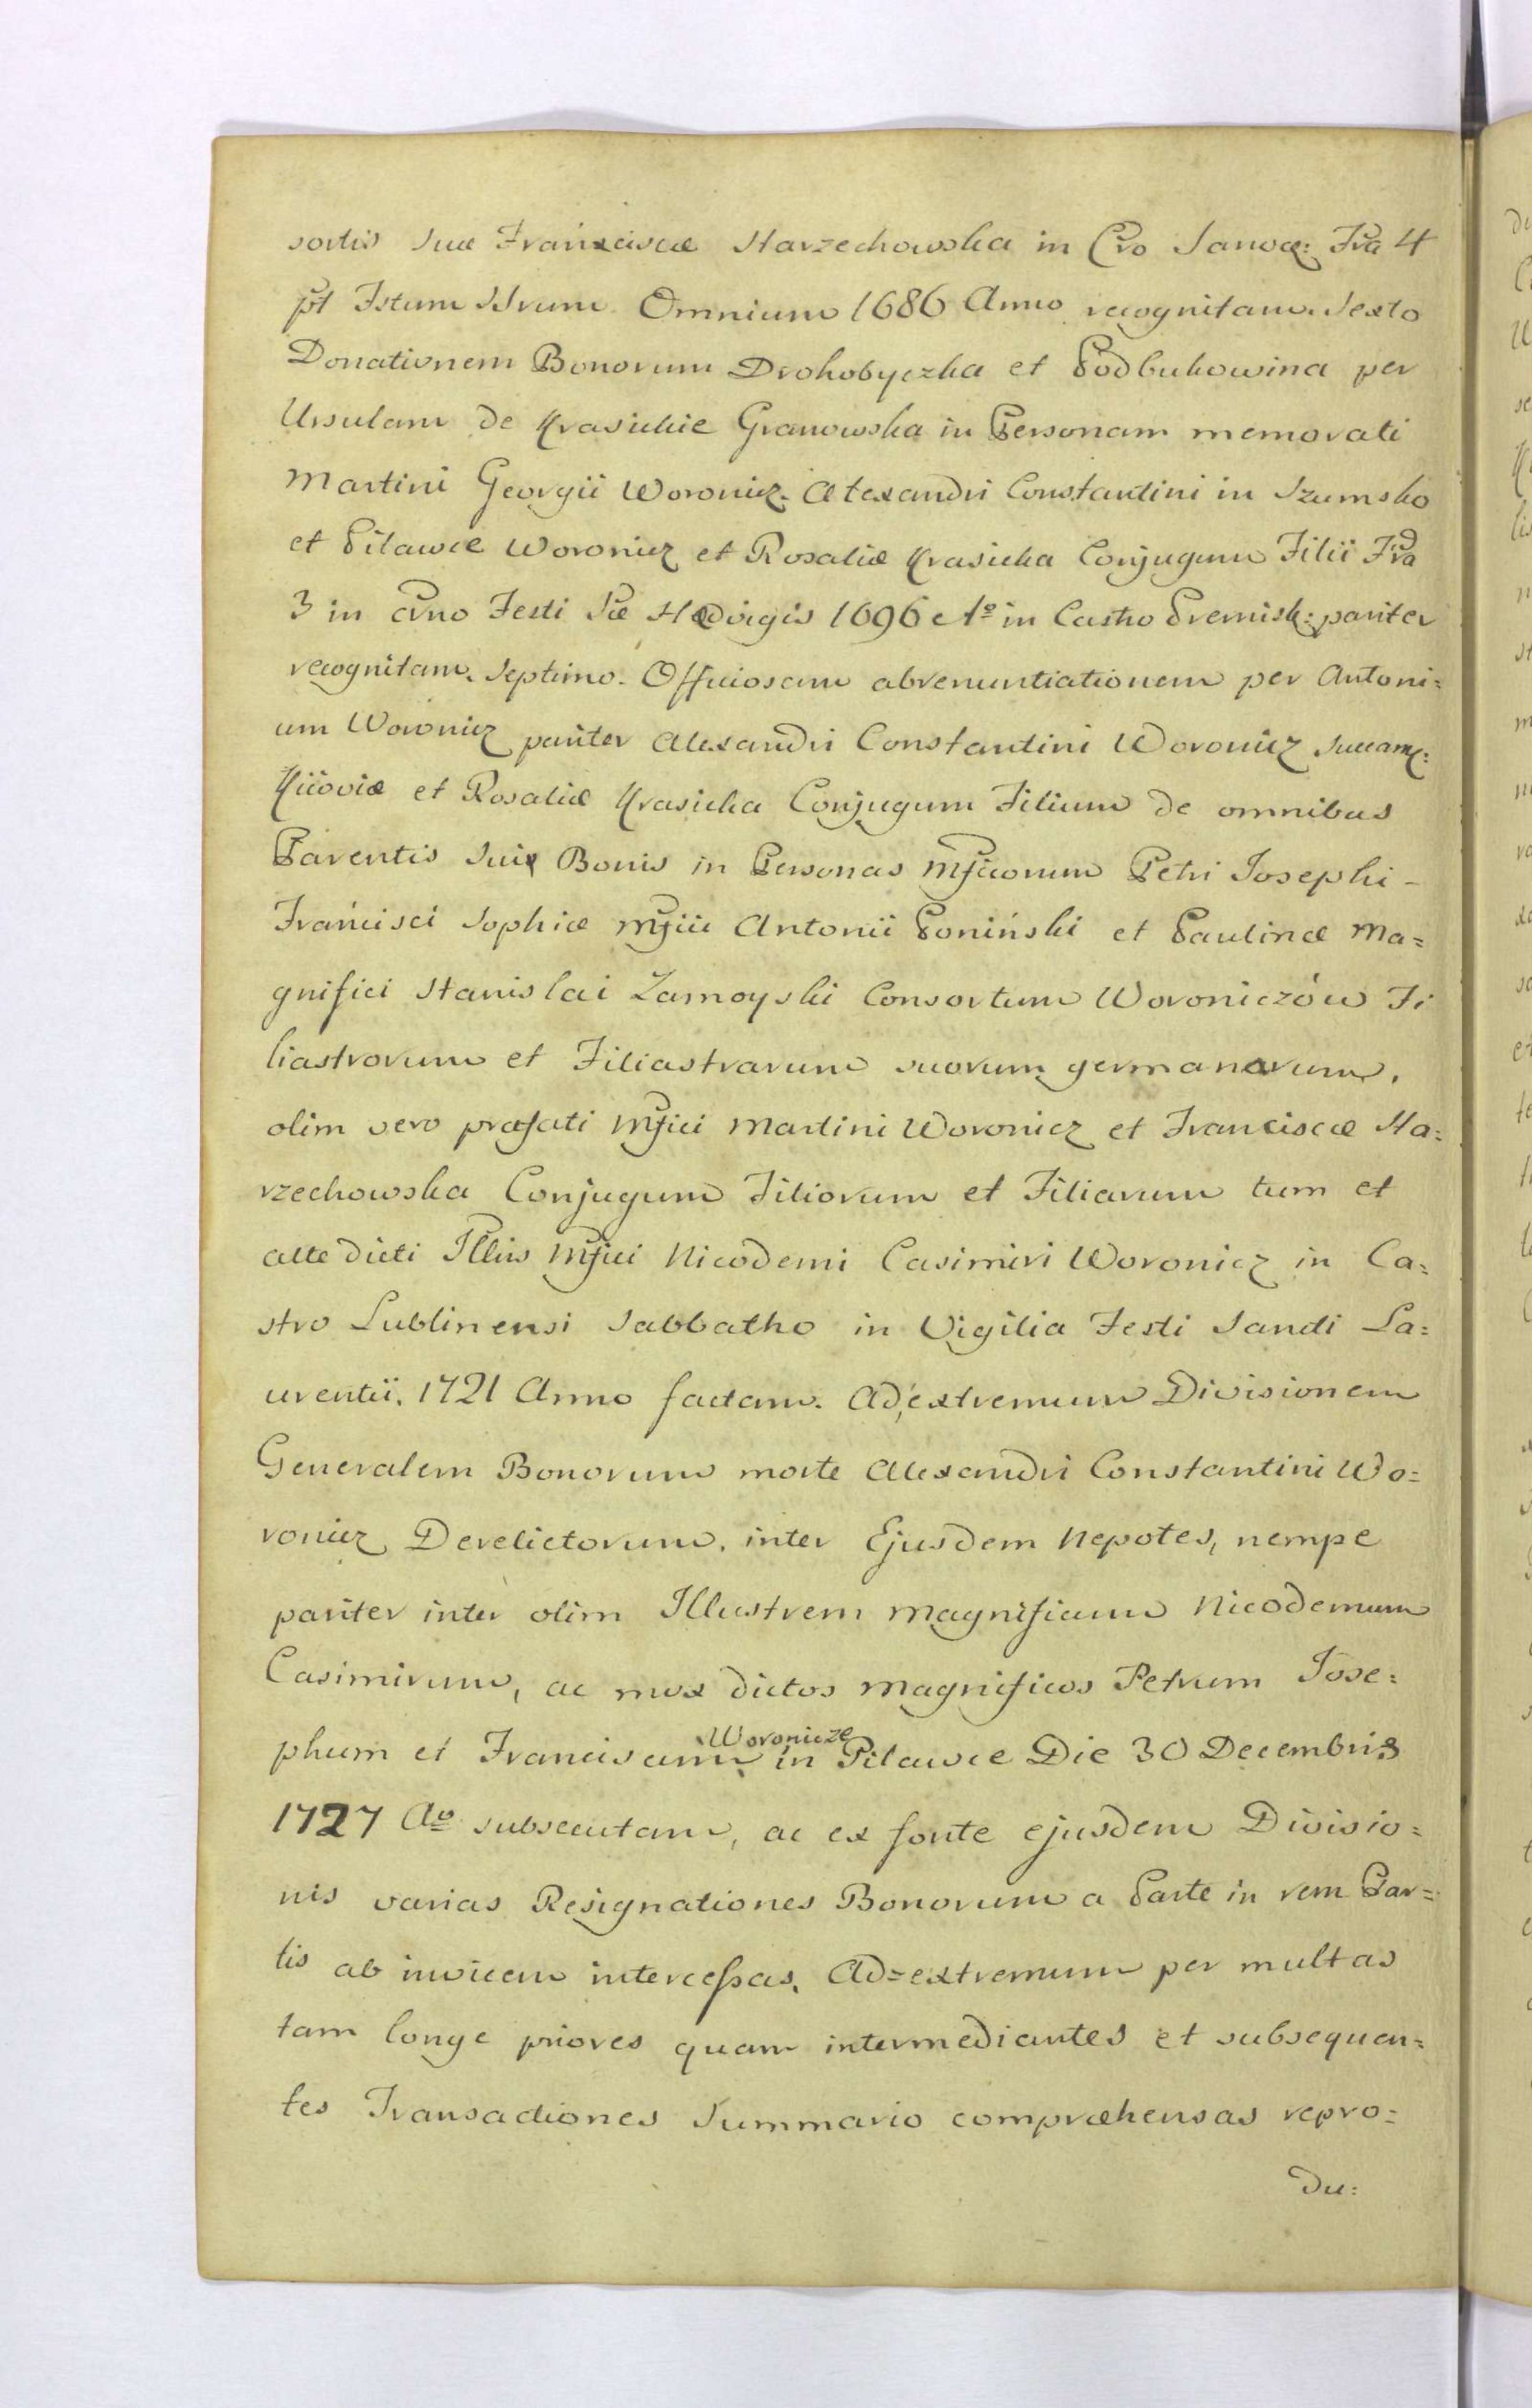 sortis Suæ Franciscæ Starzechowska in Cro Sanoc: Fra 4
pt Fstum SSrum Omnium 1686 Anno recognitam. Sexto
Donationem Bonorum Drohobyczka et Podbukowina per
Ursulam de Krasickie Granowska in Personam memorati
Martini Georgii Woronicz. Alexandri Constantini in Szumsko
et Pilawce Woronicz et Rosaliæ Krasicka Conjugum Filii Fra
3 in cvno Festi Sæ Hedvigis 1696 Ao in Castro Premisl: pariter
recognitam. Septimo. Officiosam abrenuntiationem per Antoni=
um Woronicz pariter Alexandri Constantini Woronicz Succam:
Kijoviæ et Rosaliæ Krasicka Conjugum Filium de omnibus
Parentis Sui Bonis in Personas Mficorum Petri Josephi -
Francisci Sophiæ Mfici Antonii Poniński et Paulinæ Ma=
gnifici Stanislai Zamoyski Consortum Woroniczów Fi
liastrorum et Filiastrarum suorum germanarum,
olim vero præfati Mfici Martini Woronicz et Franciscæ Sta=
rzechowska Conjugum Filiorum et Filiarum tum et
atte dicti Illris Mfici Nicodemi Casimiri Woronicz in Ca=
stro Lublinensi Sabbatho in Vigilia Festi Sancti La=
urentii. 1721 Anno factam. Ad extremum Divisionem
Generalem Bonorum morte Alexandri Constantini Wo=
ronicz Derelictorum, inter Ejusdem Nepotes, nempe
pariter inter olim Illustrem Magnificum Nicodemum
Casimirum, ac mox dictos Magnificos Petrum Jose=
phum et Franciscum Woronicze in Pilawce Die 30 Decembris
1727 Ao subsecutam, ac ex fonte ejusdem Divisio=
nis varias Resignationes Bonorum a Parte in rem Par=
tis ab invicem intercessas. Ad=extremum per multas
tam longe priores quam intermediantes et subsequen=
tes Transactiones Summario compræhensas repro=
du: